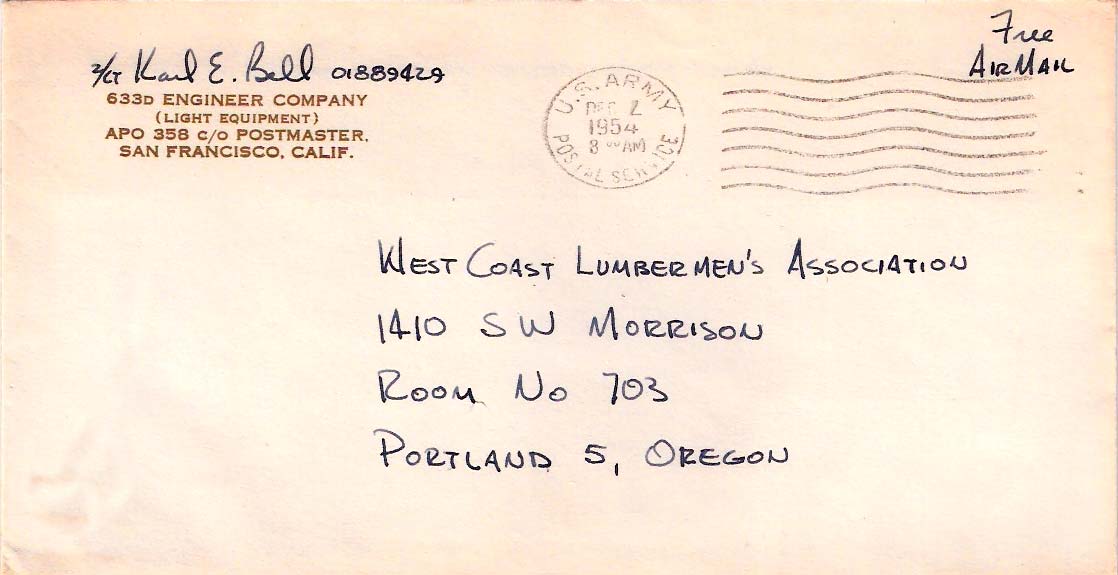 2/LT Karl E. Bell 01889429
633D ENGINEER COMPANY
(LIGHT EQUIPMENT)
APO 358 C/O POSTMASTER,
SAN FRANCISCO, CALIF.
U.S. ARMY
DEC 2
1954
8 00 AM
POSTAL SERVICE
Free
AIR MAIL
WEST COAST LUMBERMEN'S ASSOCIATION
1410 SW MORRISON
ROOM NO 703
PORTLAND 5, OREGON